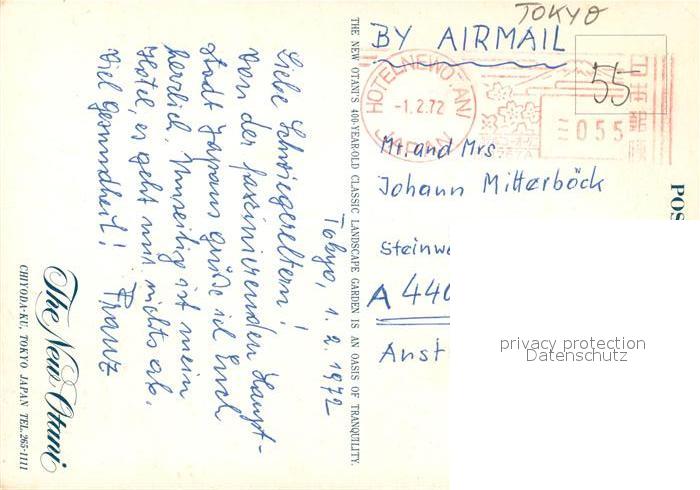 TOKYO
BY AIRMAIL
55
HOTEL NEW OTANI
-1.2.72
JAPAN
055
Mr. and Mrs
Johann Mitterböck
Steinwe
A 440
Aust
POS
privacy protection
Datenschutz
THE NEW OTANI'S 400-YEAR-OLD CLASSIC LANDSCAPE GARDEN IS AN OASIS OF TRANQUILITY.
Tokyo, 1. 2. 1972
Liebe Schwiegereltern!
Von der faszinierenden Haupt-
stadt Japans grüße ich Euch
herzlich. Umseitig ist mein
Hotel, es geht mir nichts ab.
Viel Gesundheit! Franz
The New Otani
CHIYODA-KU, TOKYO JAPAN TEL. 265-1111